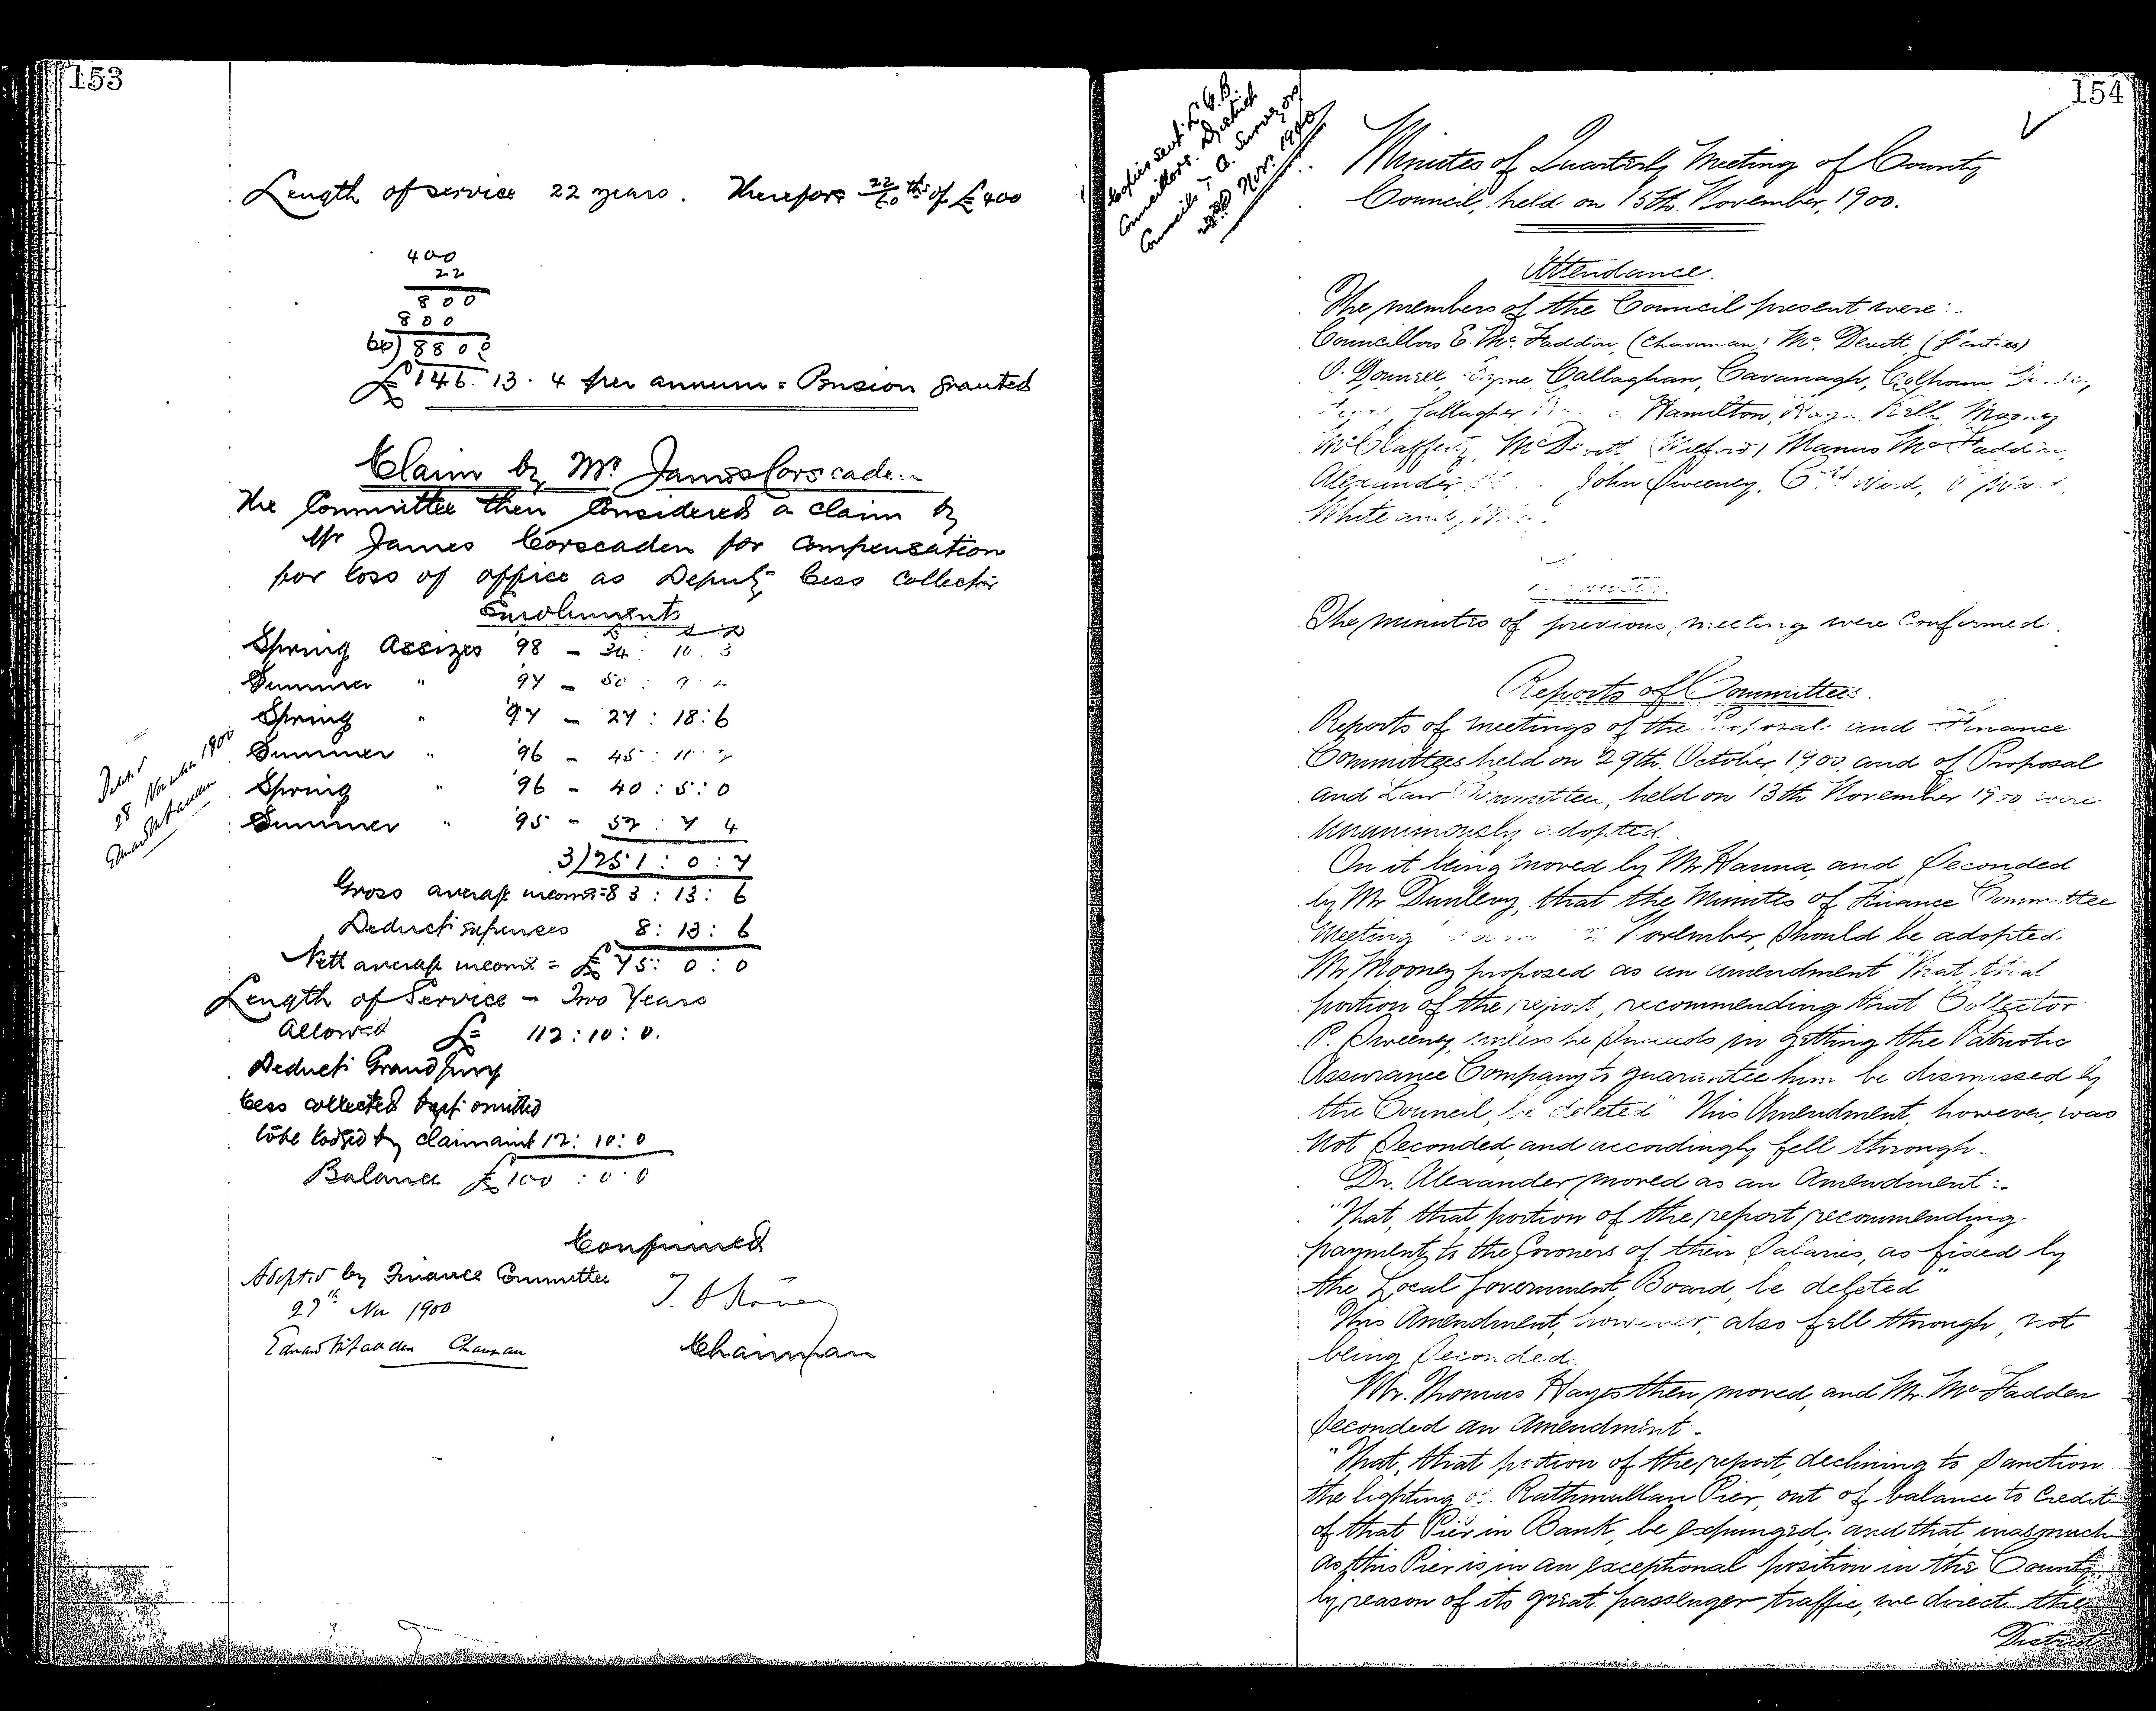 153
Length of service 22 years. Therefore 22/60 ths of £400
400
22
800
800
60) 8800
£146. 13. 4 per annum = Pension granted
Claim by Mr James Corscaden
The Committee then considered a claim by
Mr James Corscaden for compensation
for loss of office as Deputy Cess Collector
Emoluments
£ : s : d
Spring Assizes '98 - 34 : 10 . 3
Summer " '97 - 50 : 9 .
Spring " '97 - 27 : 18 : 6
Summer " '96 - 45 : 11 :
Spring " '96 - 40 : 5 : 0
Summer " '95 - 52 : 7 4
3)251 : 0 : 7
Gross average income = 83 : 13 : 6
Deduct expenses 8 : 13 : 6
Nett average income = £75 : 0 : 0
Length of Service - Two Years
Allowed £ 112 : 10 : 0.
Deduct Grand Jury
Cess collected but omitted
to be lodged by claimant 12 : 10 : 0
Balance £100 : 0 : 0
Confirmed
Adopted by Finance Committee
27th Nov 1900
Edward McFadden Chairman
Chairman
28 November 1900
Edward McFadden
154
Copies sent L.G.B.
Councillors. District
Councils & Co. Surveyors
Nov. 1900
Minutes of Quarterly Meeting of County
Council, held on 15th November, 1900.
Attendance.
The members of the Council present were :-
Councillors E. Mc Faddin, (Chairman) Mc Devitt (Glenties)
O'Donnell Byrne, Callaghan, Cavanagh, Colhoun
Gallagher Hamilton, Kelly Mooney
McClafferty, McDevitt (Milford) Manus McFaddin,
Alexander John Sweeney, Ward,
White and
The minutes of previous meeting were Confirmed.
Reports of Committees.
Reports of meetings of the Proposal and Finance
Committees held on 29th. October, 1900, and of Proposal
and Law Committee, held on 13th November 1900 were
unanimously adopted.
On it being moved by Mr Hanna, and Seconded
by Mr Dunlevy, that the Minutes of Finance Committee
Meeting November, should be adopted.
Mr Mooney proposed as an amendment "That, that
portion of the report, recommending that Collector
P. Sweeney, unless he succeeds in getting the Patriotic
Assurance Company to guarantee him be dismissed by
the Council, be deleted" This Amendment, however, was
not Seconded, and accordingly fell through.
Dr. Alexander moved as an Amendment :-
"That, that portion of the report recommending
payment to the Coroners of their Salaries, as fixed by
the Local Government Board, be deleted"
This Amendment, however, also fell through, not
being Seconded.
Mr. Thomas Hayes then moved, and Mr. McFadden
Seconded an Amendment -
"That, that portion of the report, declining to Sanction
the lighting of Rathmullan Pier, out of balance to Credit
of that Pier in Bank, be expunged; and that inasmuch
as this Pier is in an exceptional position in the County
by reason of its great passenger traffic, we direct the
District